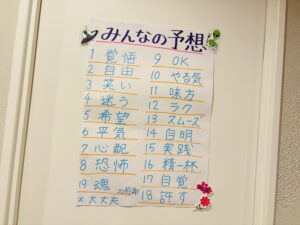 みんなの予想
1 覚悟
2 自由
3 笑い
4 迷う
5 希望
6 平気
7 心配
8 恐怖
19 魂
20 感謝
× 大丈夫
9 OK
10 やる気
11 味方
12 ラク
13 スムーズ
14 自明
15 実践
16 精一杯
17 自覚
18 許す